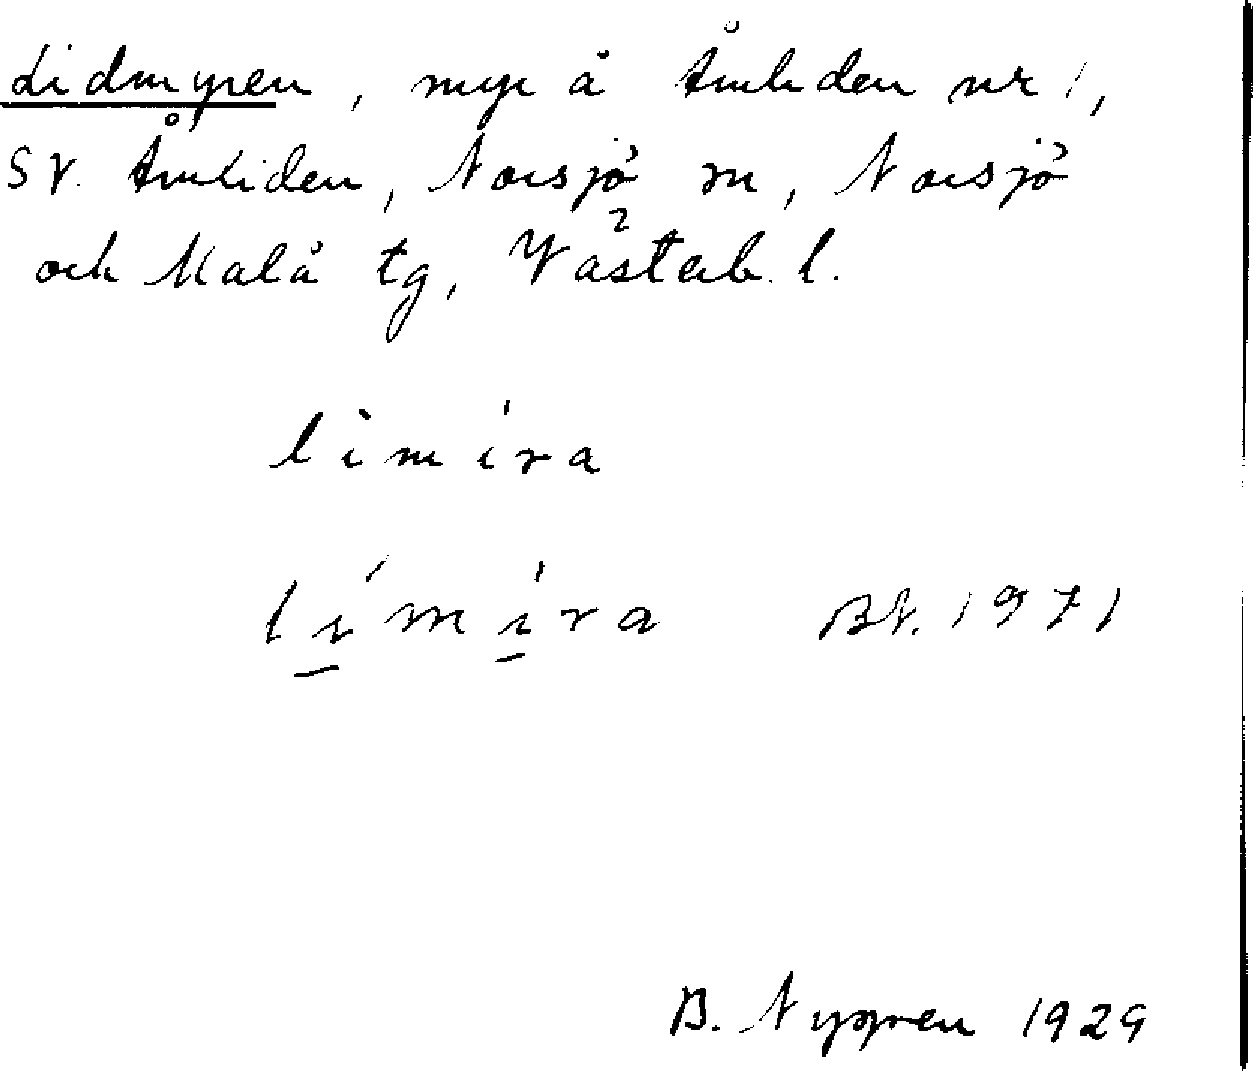 Lidmyren, myr å Åmliden nr 1,
SV. Åmliden, Norsjö sn, Norsjö
och Malå tg, Västerb. l.
lìmíra
límíra BN. 1971
B. Nygren 1929